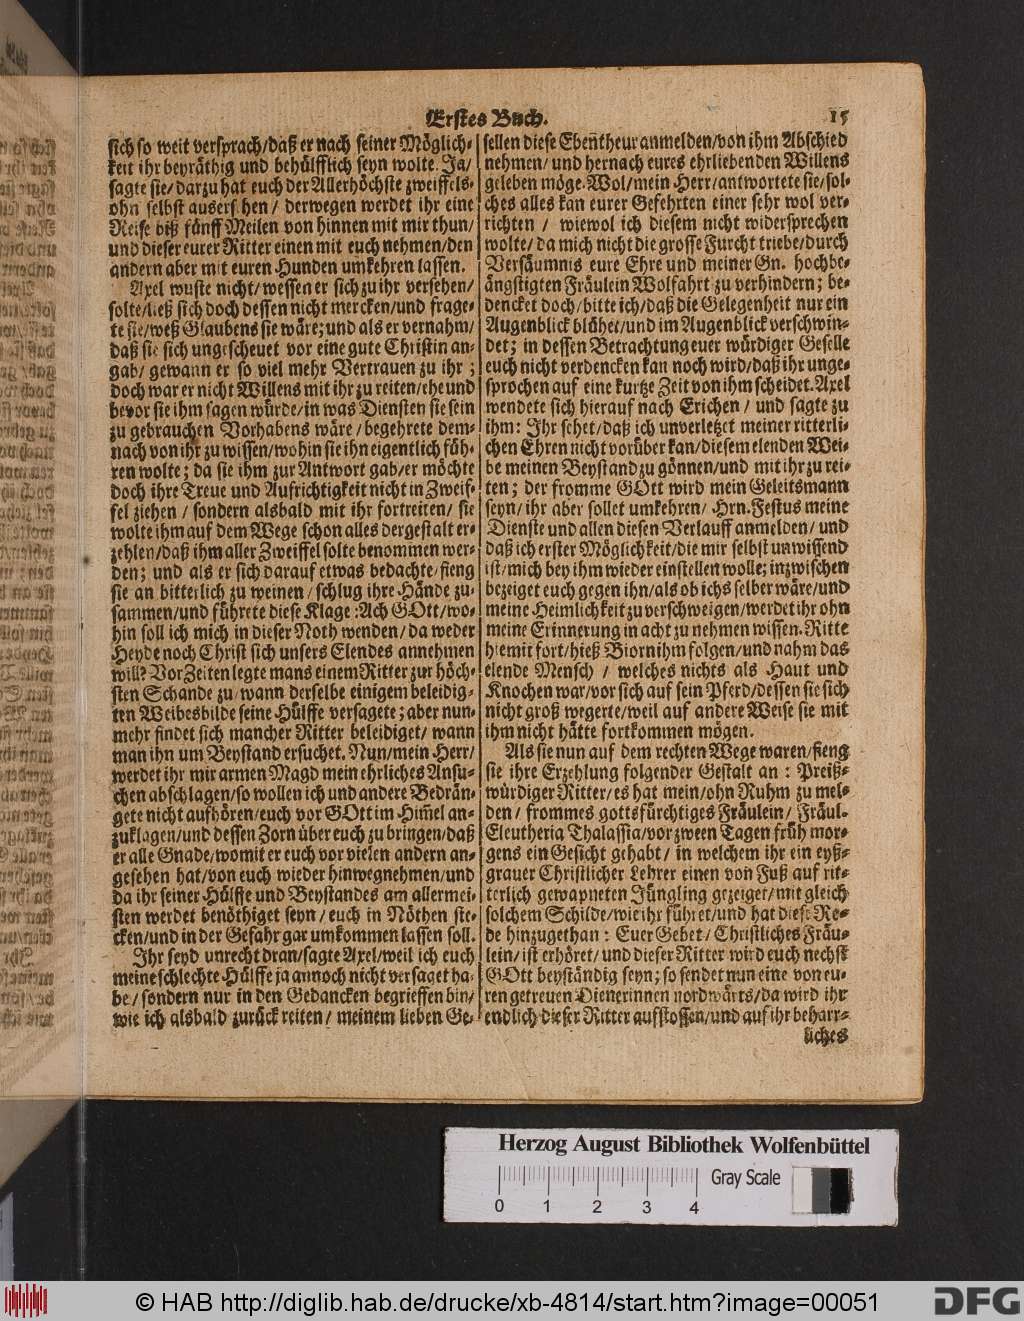 Erstes Buch. 15
sich so weit versprach/daß er nach seiner Möglich-
keit ihr beyräthig und behülfflich seyn wolte. Ja/
sagte sie/darzu hat euch der Allerhöchste zweiffels-
ohn selbst ausersehen/ derwegen werdet ihr eine
Reise biß fünff Meilen von hinnen mit mir thun/
und dieser eurer Ritter einen mit euch nehmen/den
andern aber mit euren Hunden umkehren lassen.
Axel wuste nicht/wessen er sich zu ihr versehen/
solte/ließ sich doch dessen nicht mercken/und frage-
te sie/weß Glaubens sie wäre; und als er vernahm/
daß sie sich ungescheuet vor eine gute Christin an-
gab/ gewann er so viel mehr Vertrauen zu ihr;
doch war er nicht Willens mit ihr zu reiten/ehe und
bevor sie ihm sagen würde/in was Diensten sie sein
zu gebrauchen Vorhabens wäre/begehrete dem-
nach von ihr zu wissen/wohin sie ihn eigentlich füh-
ren wolte; da sie ihm zur Antwort gab/er möchte
doch ihre Treue und Aufrichtigkeit nicht in Zweif-
fel ziehen/ sondern alsbald mit ihr fortreiten/ sie
wolte ihm auf dem Wege schon alles dergestalt er-
zehlen/daß ihm aller Zweiffel solte benommen wer-
den; und als er sich darauf etwas bedachte/fieng
sie an bitterlich zu weinen/schlug ihre Hände zu-
sammen/und führete diese Klage: Ach GOtt/wo-
hin soll ich mich in dieser Noth wenden/da weder
Heyde noch Christ sich unsers Elendes annehmen
will? Vor Zeiten legte mans einem Ritter zur höch-
sten Schande zu/wann derselbe einigem beleidig-
ten Weibesbilde seine Hülffe versagete; aber nun-
mehr findet sich mancher Ritter beleidiget/wann
man ihn um Beystand ersuchet. Nun/mein Herr/
werdet ihr mir armen Magd mein ehrliches Ansu-
chen abschlagen/so wollen ich und andere Bedrän-
gete nicht aufhören/euch vor GOtt im Him̄el an-
zuklagen/und dessen Zorn über euch zu bringen/daß
er alle Gnade/womit er euch vor vielen andern an-
gesehen hat/von euch wieder hinwegnehmen/und
da ihr seiner Hülffe und Beystandes am allermei-
sten werdet benöthiget seyn/euch in Nöthen ste-
cken/und in der Gefahr gar umkommen lassen soll.
Ihr seyd unrecht dran/sagte Axel/weil ich euch
meine schlechte Hülffe ja annoch nicht versaget ha-
be/sondern nur in den Gedancken begrieffen bin/
wie ich alsbald zurück reiten/ meinem lieben Ge-
sellen diese Eben̄theur anmelden/von ihm Abschied
nehmen/und hernach eures ehrliebenden Willens
geleben möge. Wol/mein Herr/antwortete sie/sol-
ches alles kan eurer Gefehrten einer sehr wol ver-
richten/ wiewol ich diesem nicht widersprechen
wolte/da mich nicht die grosse Furcht triebe/durch
Versäumnis eure Ehre und meiner Gn. hochbe-
ängstigten Fräulein Wolfahrt zu verhindern; be-
dencket doch/bitte ich/daß die Gelegenheit nur ein
Augenblick blühet/und im Augenblick verschwin-
det; in dessen Betrachtung euer würdiger Geselle
euch nicht verdencken kan noch wird/daß ihr unge-
sprochen auf eine kurtze Zeit von ihm scheidet. Axel
wendete sich hierauf nach Erichen/ und sagte zu
ihm: Ihr sehet/daß ich unverletzet meiner ritterli-
chen Ehren nicht vorüber kan/diesem elenden Wei-
be meinen Beystand zu gönnen/und mit ihr zu rei-
ten; der fromme GOtt wird mein Geleitsmann
seyn/ihr aber sollet umkehren/ Hrn. Festus meine
Dienste und allen diesen Verlauff anmelden/und
daß ich erster Möglichkeit/die mir selbst unwissend
ist/mich bey ihm wieder einstellen wolle; inzwischen
bezeiget euch gegen ihn/als ob ichs selber wäre/und
meine Heimlichkeit zu verschweigen/werdet ihr ohn
meine Erinnerung in acht zu nehmen wissen. Ritte
hiemit fort/hieß Biorn ihm folgen/und nahm das
elende Mensch/ welches nichts als Haut und
Knochen war/vor sich auf sein Pferd/dessen sie sich
nicht groß wegerte/weil auf andere Weise sie mit
ihm nicht hätte fortkommen mögen.
Als sie nun auf dem rechten Wege waren/fieng
sie ihre Erzehlung folgender Gestalt an: Preiß-
würdiger Ritter/es hat mein/ohn Ruhm zu mel-
den/ frommes gottsfürchtiges Fräulein/ Fräul.
Eleutheria Thalassia/vor zween Tagen früh mor-
gens ein Gesicht gehabt/ in welchem ihr ein eyß-
grauer Christlicher Lehrer einen von Fuß auf rit-
terlich gewapneten Jüngling gezeiget/mit gleich
solchem Schilde/wie ihr führet/und hat diese Re-
de hinzugethan: Euer Gebet/Christliches Fräu-
lein/ist erhöret/und dieser Ritter wird euch nechst
GOtt beyständig seyn; so sendet nun eine von eu-
ren getreuen Dienerinnen nordwärts/da wird ihr
endlich dieser Ritter aufstossen/und auf ihr beharr-
liches
Herzog August Bibliothek Wolfenbüttel
Gray Scale
0 1 2 3 4
© HAB http://diglib.hab.de/drucke/xb-4814/start.htm?image=00051
DFG